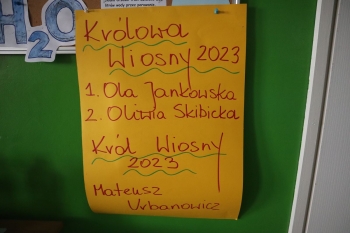 H2O
Królowa
Wiosny 2023
1. Ola Jankowska
2. Oliwia Skibicka
Król Wiosny
2023
Mateusz
Urbanowicz